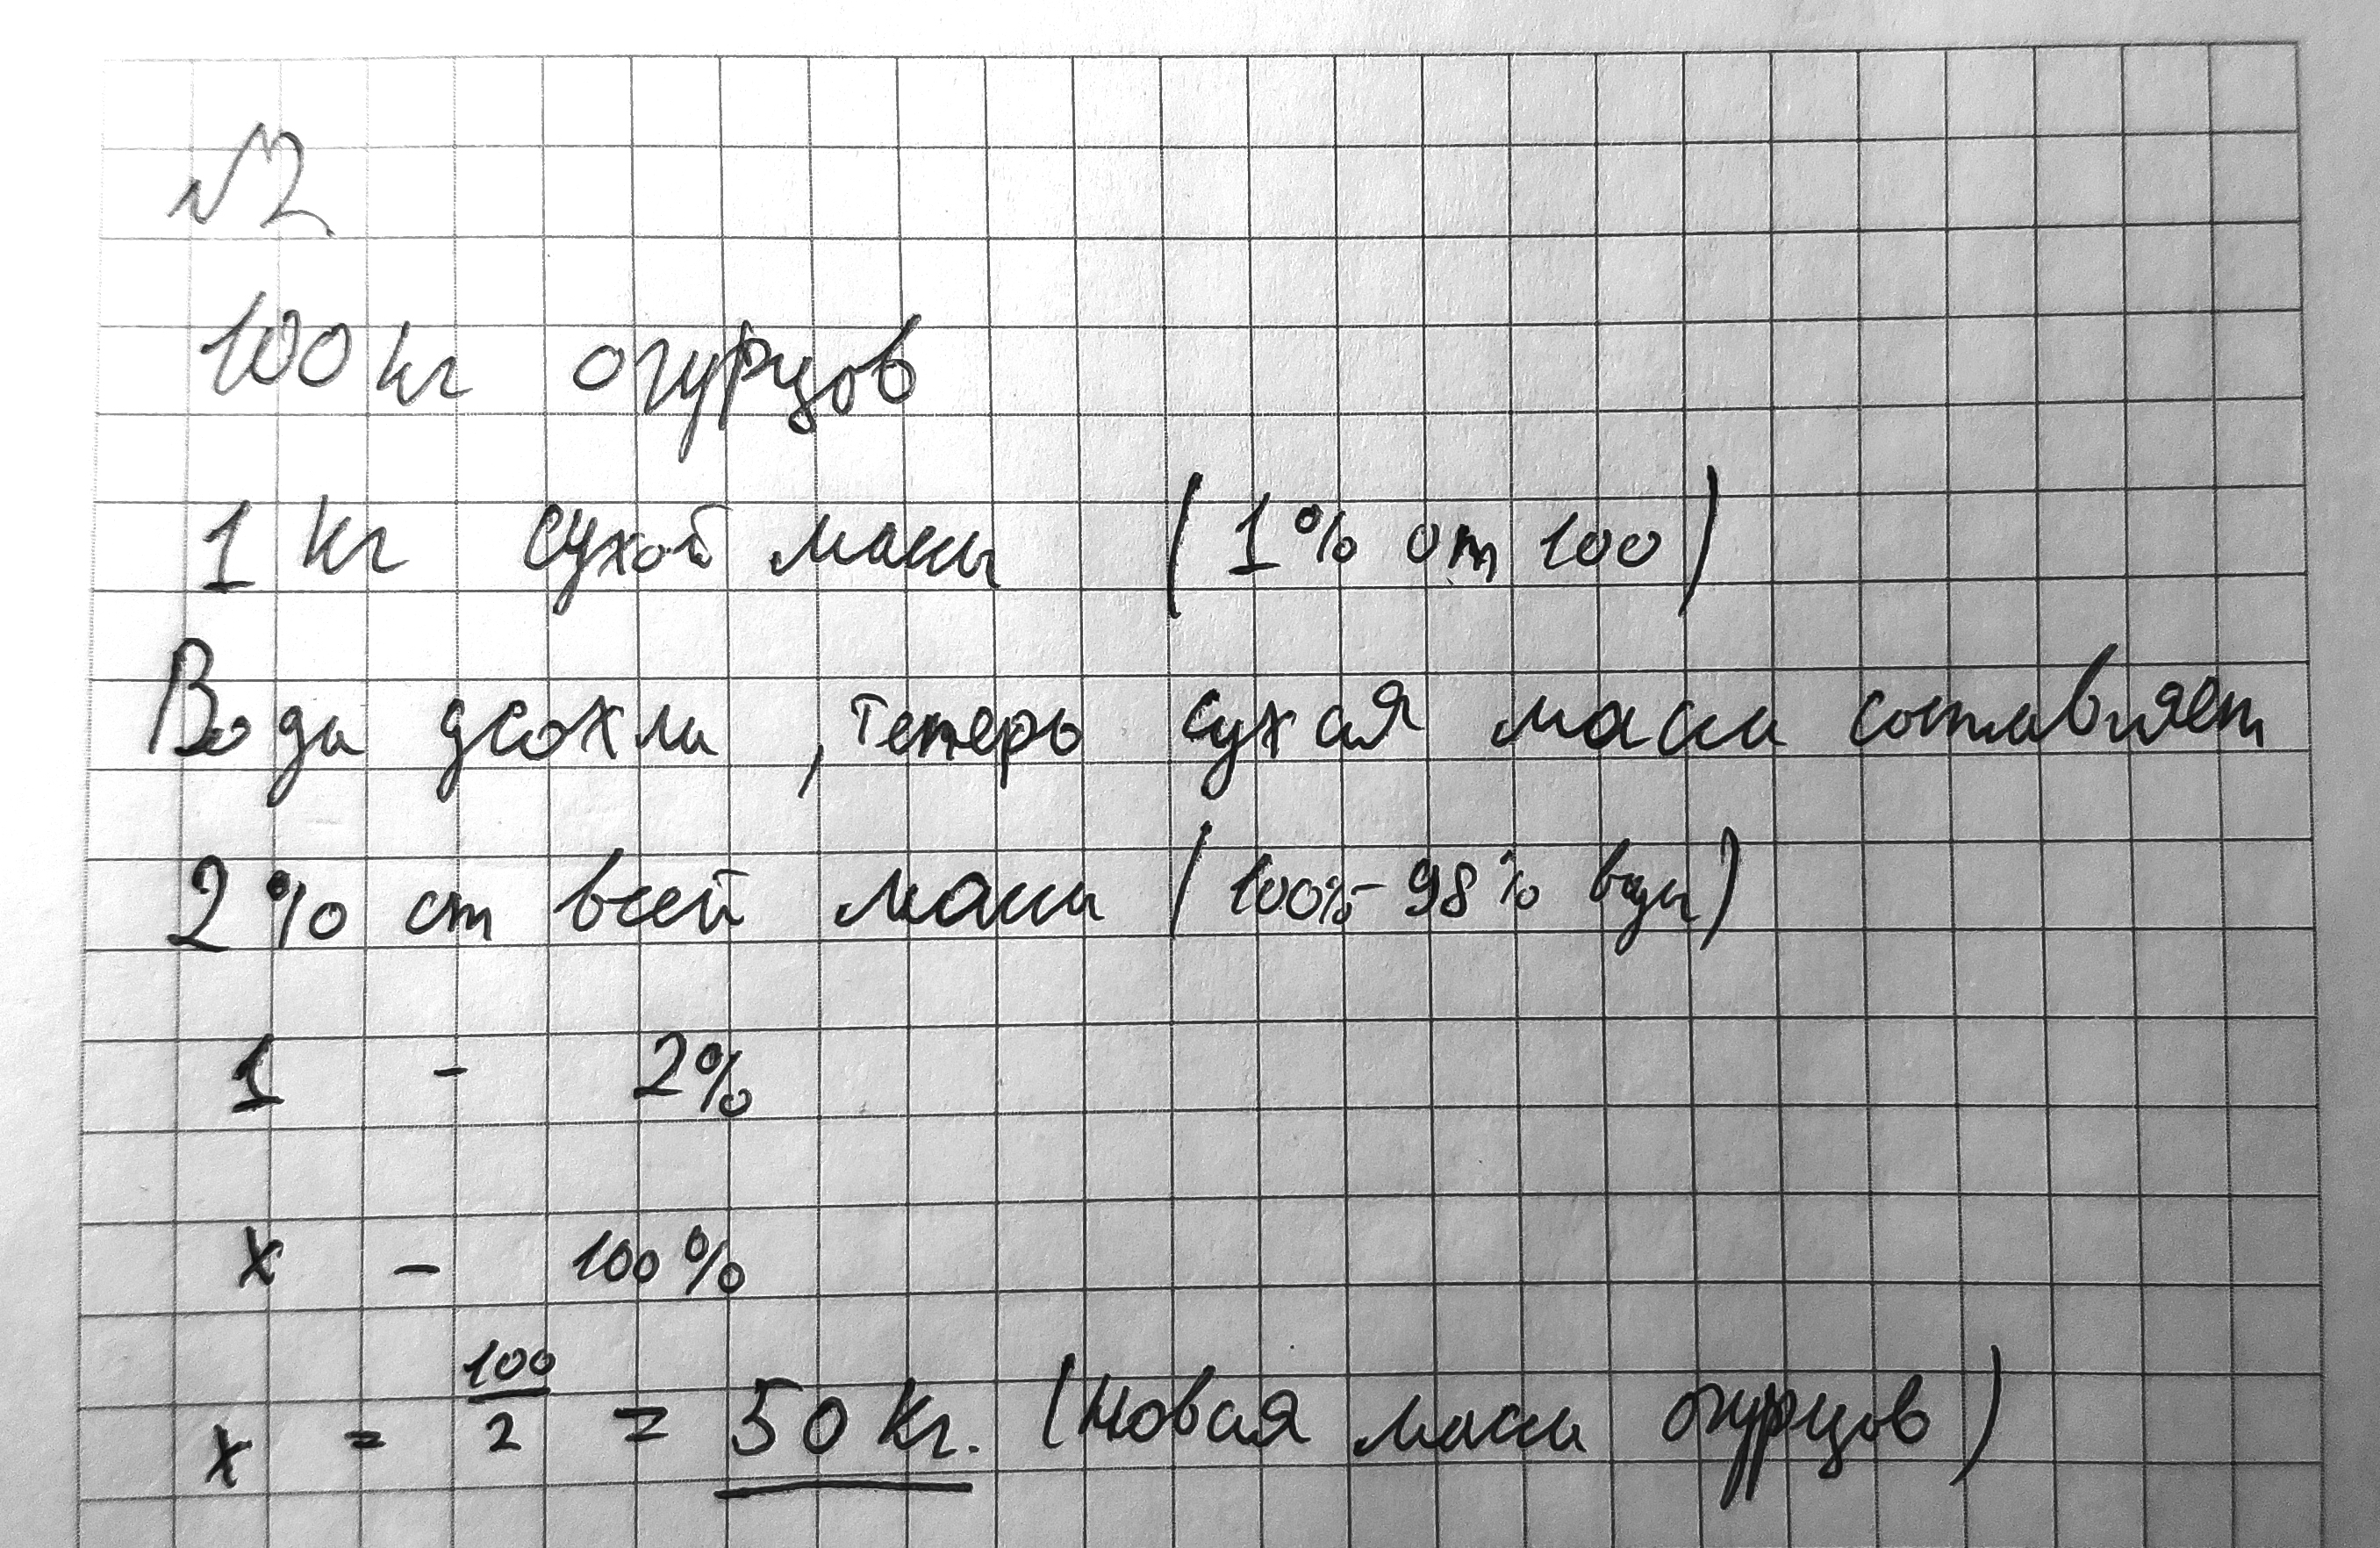 №2
100 кг огурцов
1 кг сухой массы (1% от 100)
Вода усохла, теперь сухая масса составляет
2% от всей массы (100%-98% воды)
1 - 2%
x - 100%
x = 100/2 = 50 кг. (Новая масса огурцов)